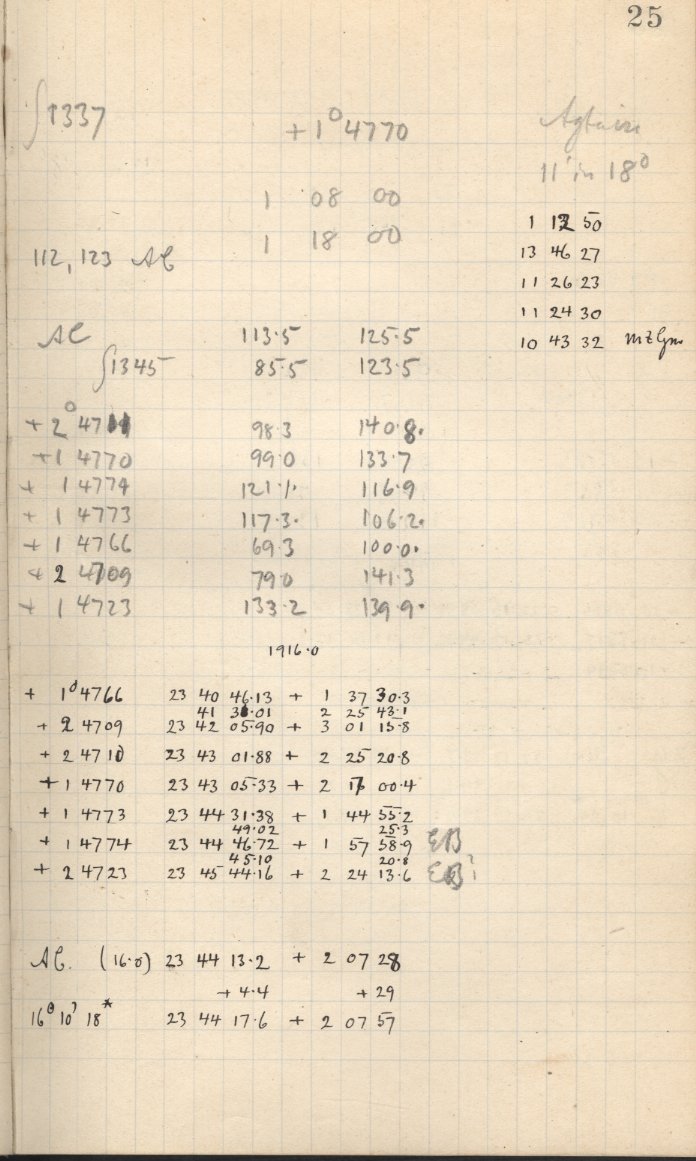 25
∫1337 +1° 4770
11' in 18°
1 08 00
1 18 00
112, 123 AC
1 12 50
13 46 27
11 26 23
11 24 30
10 43 32
AC 113.5 125.5
∫1345 85.5 123.5
+ 2° 4711 98.3 140.8.
+1 4770 99.0 133.7
+ 1 4774 121.1. 116.9
+ 1 4773 117.3. 106.2.
+ 1 4766 69.3 100.0.
+ 2 4709 79.0 141.3
+ 1 4723 133.2 139.9.
1916.0
+ 1° 4766 23 40 46.13 + 1 37 30.3
41 38.01 2 25 43.1
+ 2 4709 23 42 05.90 + 3 01 15.8
+ 2 4710 23 43 01.88 + 2 25 20.8
+ 1 4770 23 43 05.33 + 2 17 00.4
+ 1 4773 23 44 31.38 + 1 44 55.2
49.02 25.3
+ 1 4774 23 44 46.72 + 1 57 58.9 EB
45.10 20.8
+ 2 4723 23 45 44.16 + 2 24 13.6 EB?
AC. (16.0) 23 44 13.2 + 2 07 28
+ 4.4 + 29
23 44 17.6 + 2 07 57